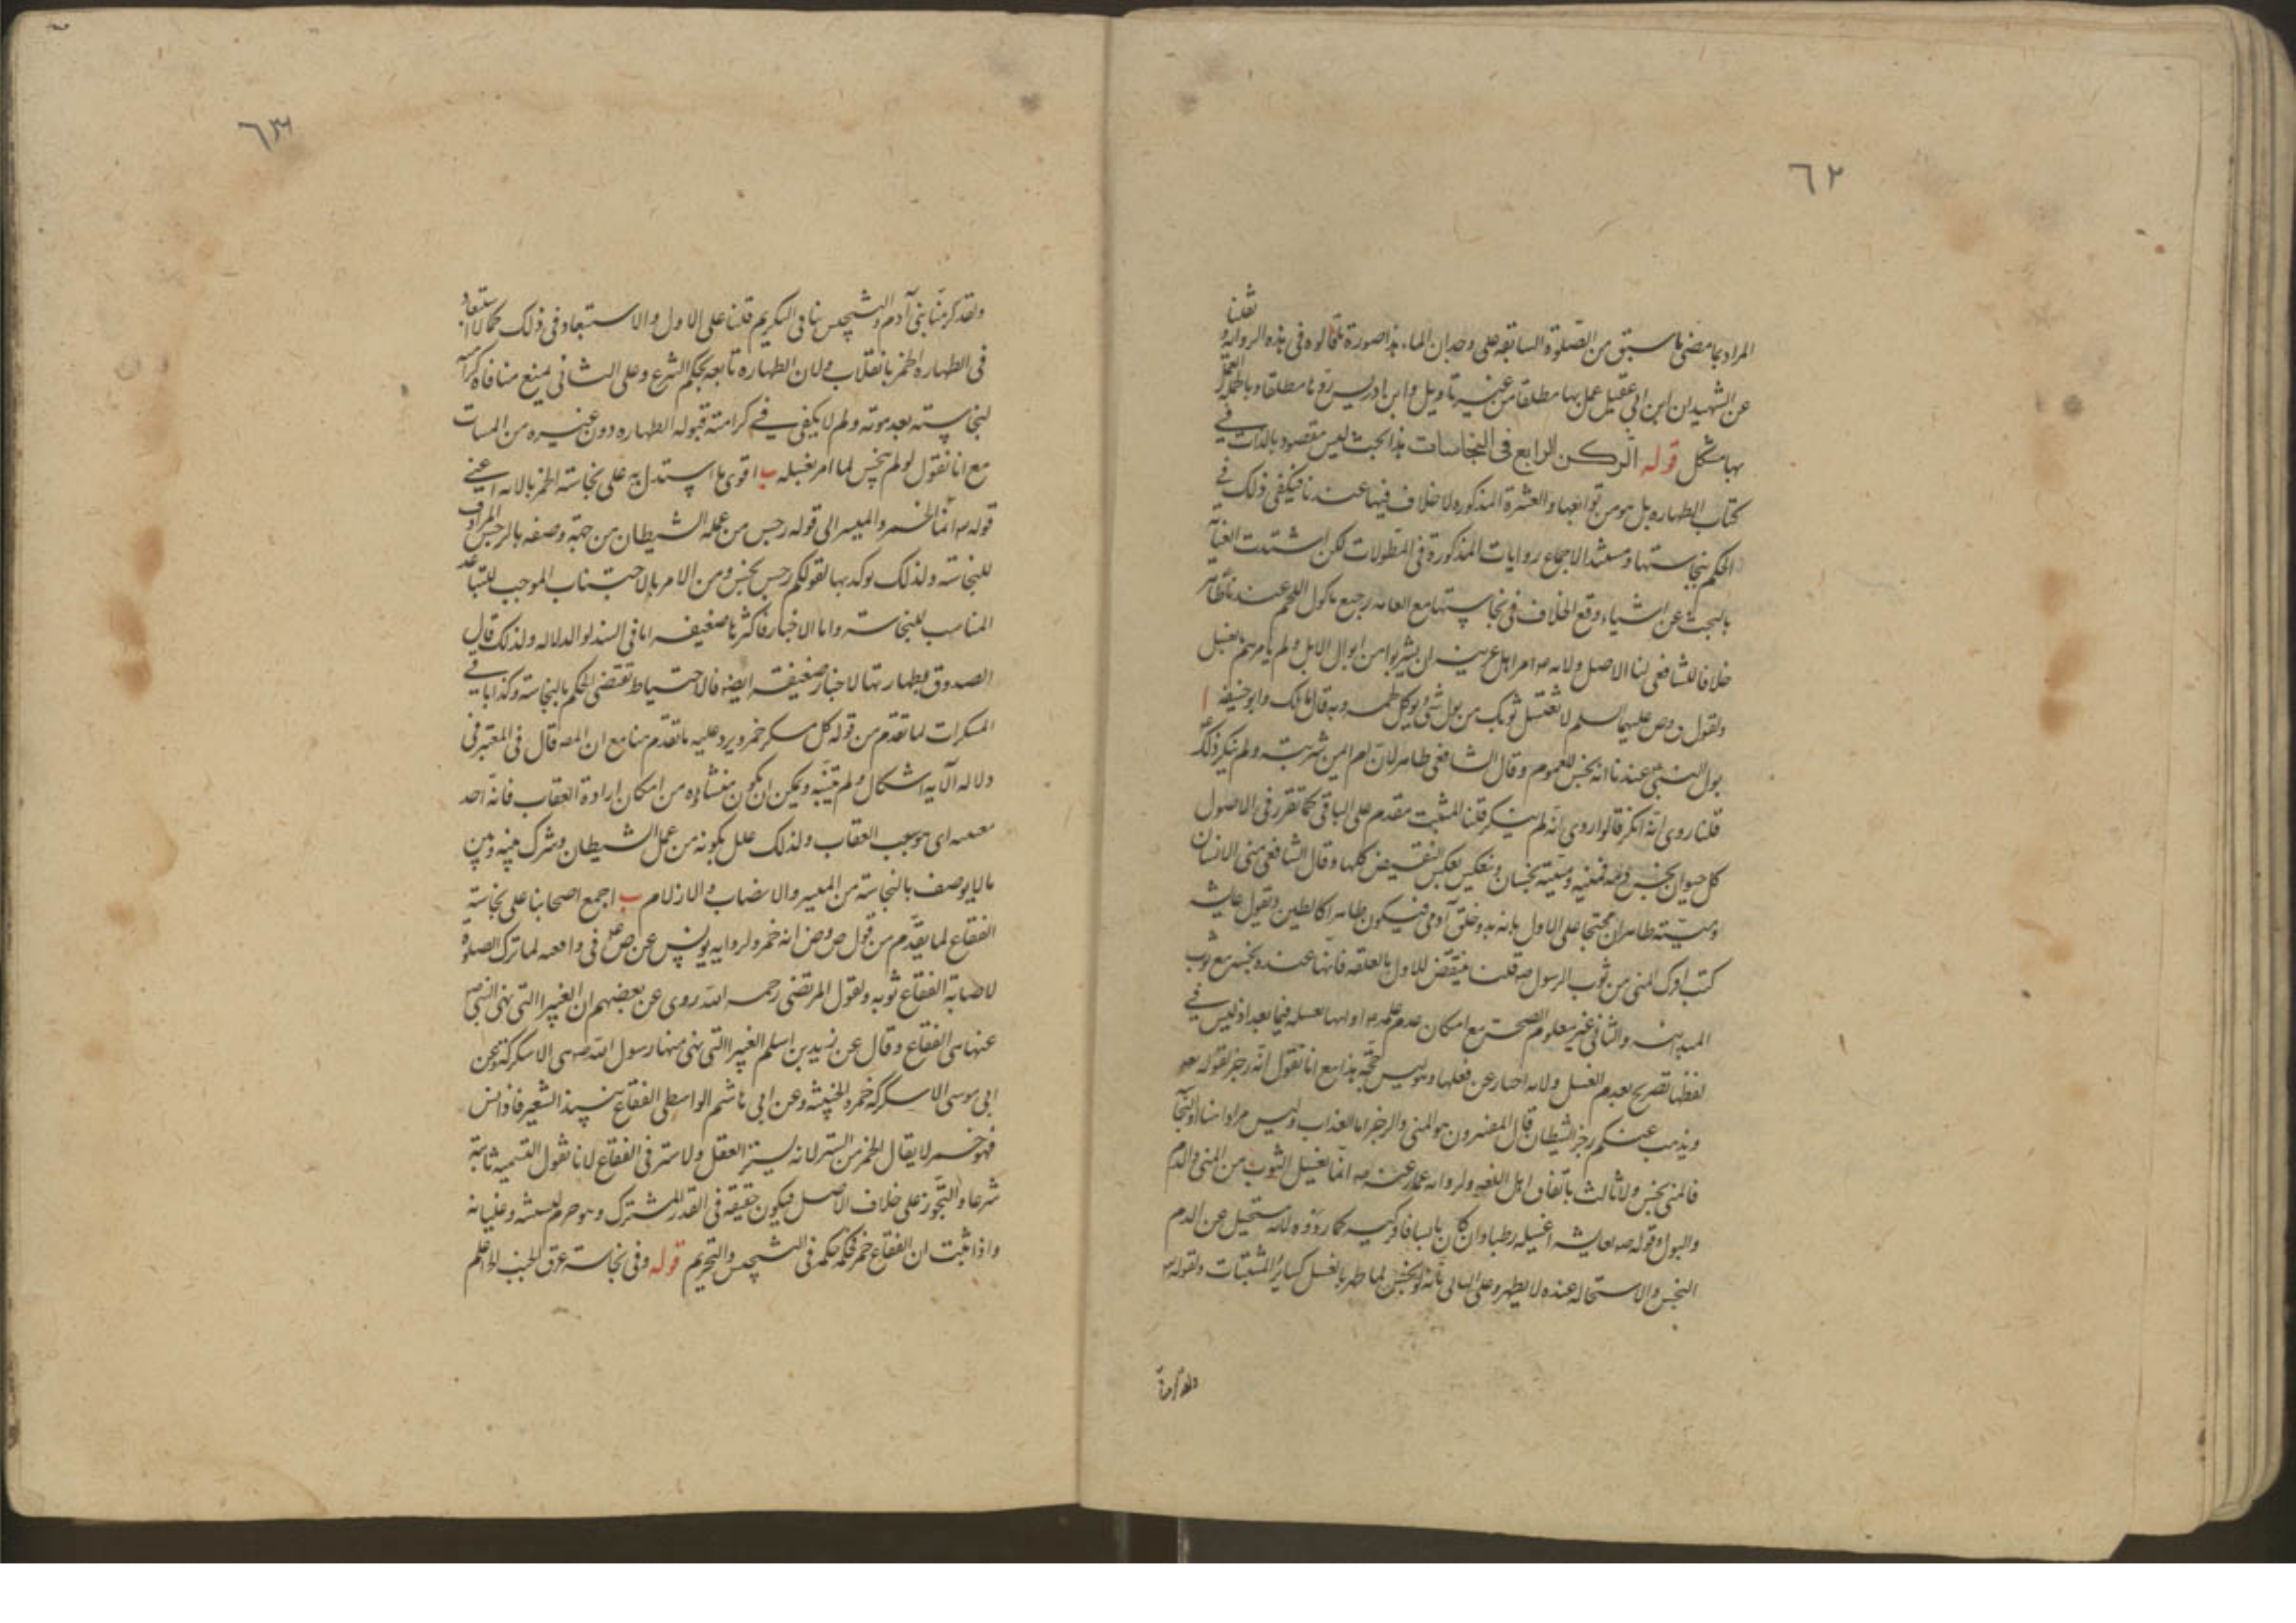 ٦٢
نقلنا
المراد بما مضى ما سبق من الصلوة السابقة على وجدان الماء هذا صورة ما قالوه فى هذه الرواية و
عن الشهيد ان ابن ابى عقيل عمل بها مطلقا من غير تاويل وابن ادريس ردها مطلقا وبالجملة العمل
بها مشكل قوله الركن الرابع فى النجاسات هذا البحث ليس مقصود بالذات فى
كتاب الطهارة بل هو من توابعها والعشرة المذكوره لا خلاف فيها عندنا فيكفى ذلك فى
الحكم بنجاستها ومستند الاجماع روايات المذكورة فى المطولات لكن اشتدت العناية
بالبحث عن اشياء وقع الخلاف فى نجاستها مع العامه رجيع ماكول اللحم عندنا طاهر
خلافا للشافعى لنا الاصل ولانه ص امر اهل عرينه ان يشربوا من ابوال الابل ولم يامرهم بغسل
ولقول عليهما السلم لا تغسل ثوبك من بول شى يوكل لحمه وبه قال مالك وابو حنيفه ا
بول النبى عندنا انه نجس للعموم وقال الشافعى طاهر لان ام ايمن شربته ولم ينكر ذلك
قلنا روى انه انكر قالوا روى انه لم ينكر قلنا المثبت مقدم على الباقى كما تقرر فى الاصول
كل حيوان نجس دمه فمنيه وميتته نجسان وينعكس بعكس النقيض كلها وقال الشافعى منى الانسان
وميتته طاهران محتجا على الاول بانه بدو خلق آدمى فيكون طاهرا كالطين وبقول عايشه
كنت افرك المنى من ثوب الرسول ص قلنا ينتقض الاول بالعلقه فانها عنده نجسه مع ثوب
المبدائيه والثانى غير معلوم الصحة مع امكان عدم علمه ص او انها تغسله فيما بعد اذ ليس فى
لفظها تصريح بعدم الغسل ولانه اخبار عن فعلها وليس حجة هذا مع انا نقول انه رجز لقوله تعه
ويذهب عنكم رجز الشيطان قال المفسرون هو المنى والرجز اما العذاب وليس مرادا هنا او النجاسة
فالمنى نجس ولا ثالث باتفاق اهل اللغه ولروايه عمار عنه ص انما يغسل الثوب من المنى والدم
والبول وقوله ص لعايشه اغسليه رطبا وان كان يابسا فافركيه كما رووه لانه مستحيل عن الدم
النجس والاستحاله عنده لا يطهر وعلى الثانى بانه لو نجس لما طهر بالغسل كسائر الميتات ولقوله تع
ولقد كرمنا
٦٣
ولقد كرمنا بنى آدم والتنجيس ينافى التكريم قلنا على الاول والاستبعاد فى ذلك كما لا استبعاد
فى الطهاره الخمر بانقلاب ولان الطهاره تابعه لحكم الشرع وعلى الثانى يمنع منافاة كرامته
لنجاسته بعد موته ولم لا يكفى فى كرامته قبوله الطهاره دون غيره من الميتات
مع انا نقول لو لم ينجس لما امر بغسله ب اقوى ما استدل به على نجاسة الخمر بالاية اعنى
قوله تع انما الخمر والميسر الى قوله رجس من عمل الشيطان من جهة وصفه بالرجس المرادف
للنجاسة ولذلك يوكد بها لقولكم رجس نجس ومن الامر بالاجتناب الموجب للتباعد
المناسب للنجاسة واما الاخبار فاكثرها ضعيفه اما فى السند او الدلاله ولذلك قال
الصدوق بطهارتها لاخبار ضعيفه ايضه فالاحتياط تقتضى الحكم بالنجاسة وكذا باقى
المسكرات لما تقدم من قوله كل مسكر خمر ويرد عليه ما تقدم هنا مع ان المصه قال فى المعتبر فى
دلاله الآيه اشكال ولم يبينه ويمكن ان يكون منشاؤه من امكان ارادة العقاب فانه احد
معنييه اى موجب العقاب ولذلك علل بكونه من عمل الشيطان وشرك بينه وبين
ما لا يوصف بالنجاسة من الميسر والانصاب والازلام ب اجمع اصحابنا على نجاسة
الفقاع لما يقدم من قول ص وض انه خمر ولروايه يونس عن ص فى واقعه لما ترك الصلوة
لاصابة الفقاع ثوبه ولقول المرتضى رحمه الله روى عن بعضهم ان الغبيرا التى نهى النبى ص
عنها هى الفقاع وقال عن زيد بن اسلم الغبيرا التى نهى عنها رسول الله ص هى الاسكركة وعن
ابى موسى الاسكركه خمر الحبشه وعن ابى هاشم الواسطى الفقاع نبيذ الشعير فاذا نش
فهو خمر لا يقال الخمر من الستر لانه يستر العقل ولا ستر فى الفقاع لانا نقول التسميه ثابتة
شرعا والتجوز على خلاف الاصل فيكون حقيقه فى القدر المشترك وهو حرم لنشيشه وغليانه
واذا ثبت ان الفقاع خمر فحكمه حكمه فى التنجيس والتحريم قوله وفى نجاسة عرق الجنب الحرام